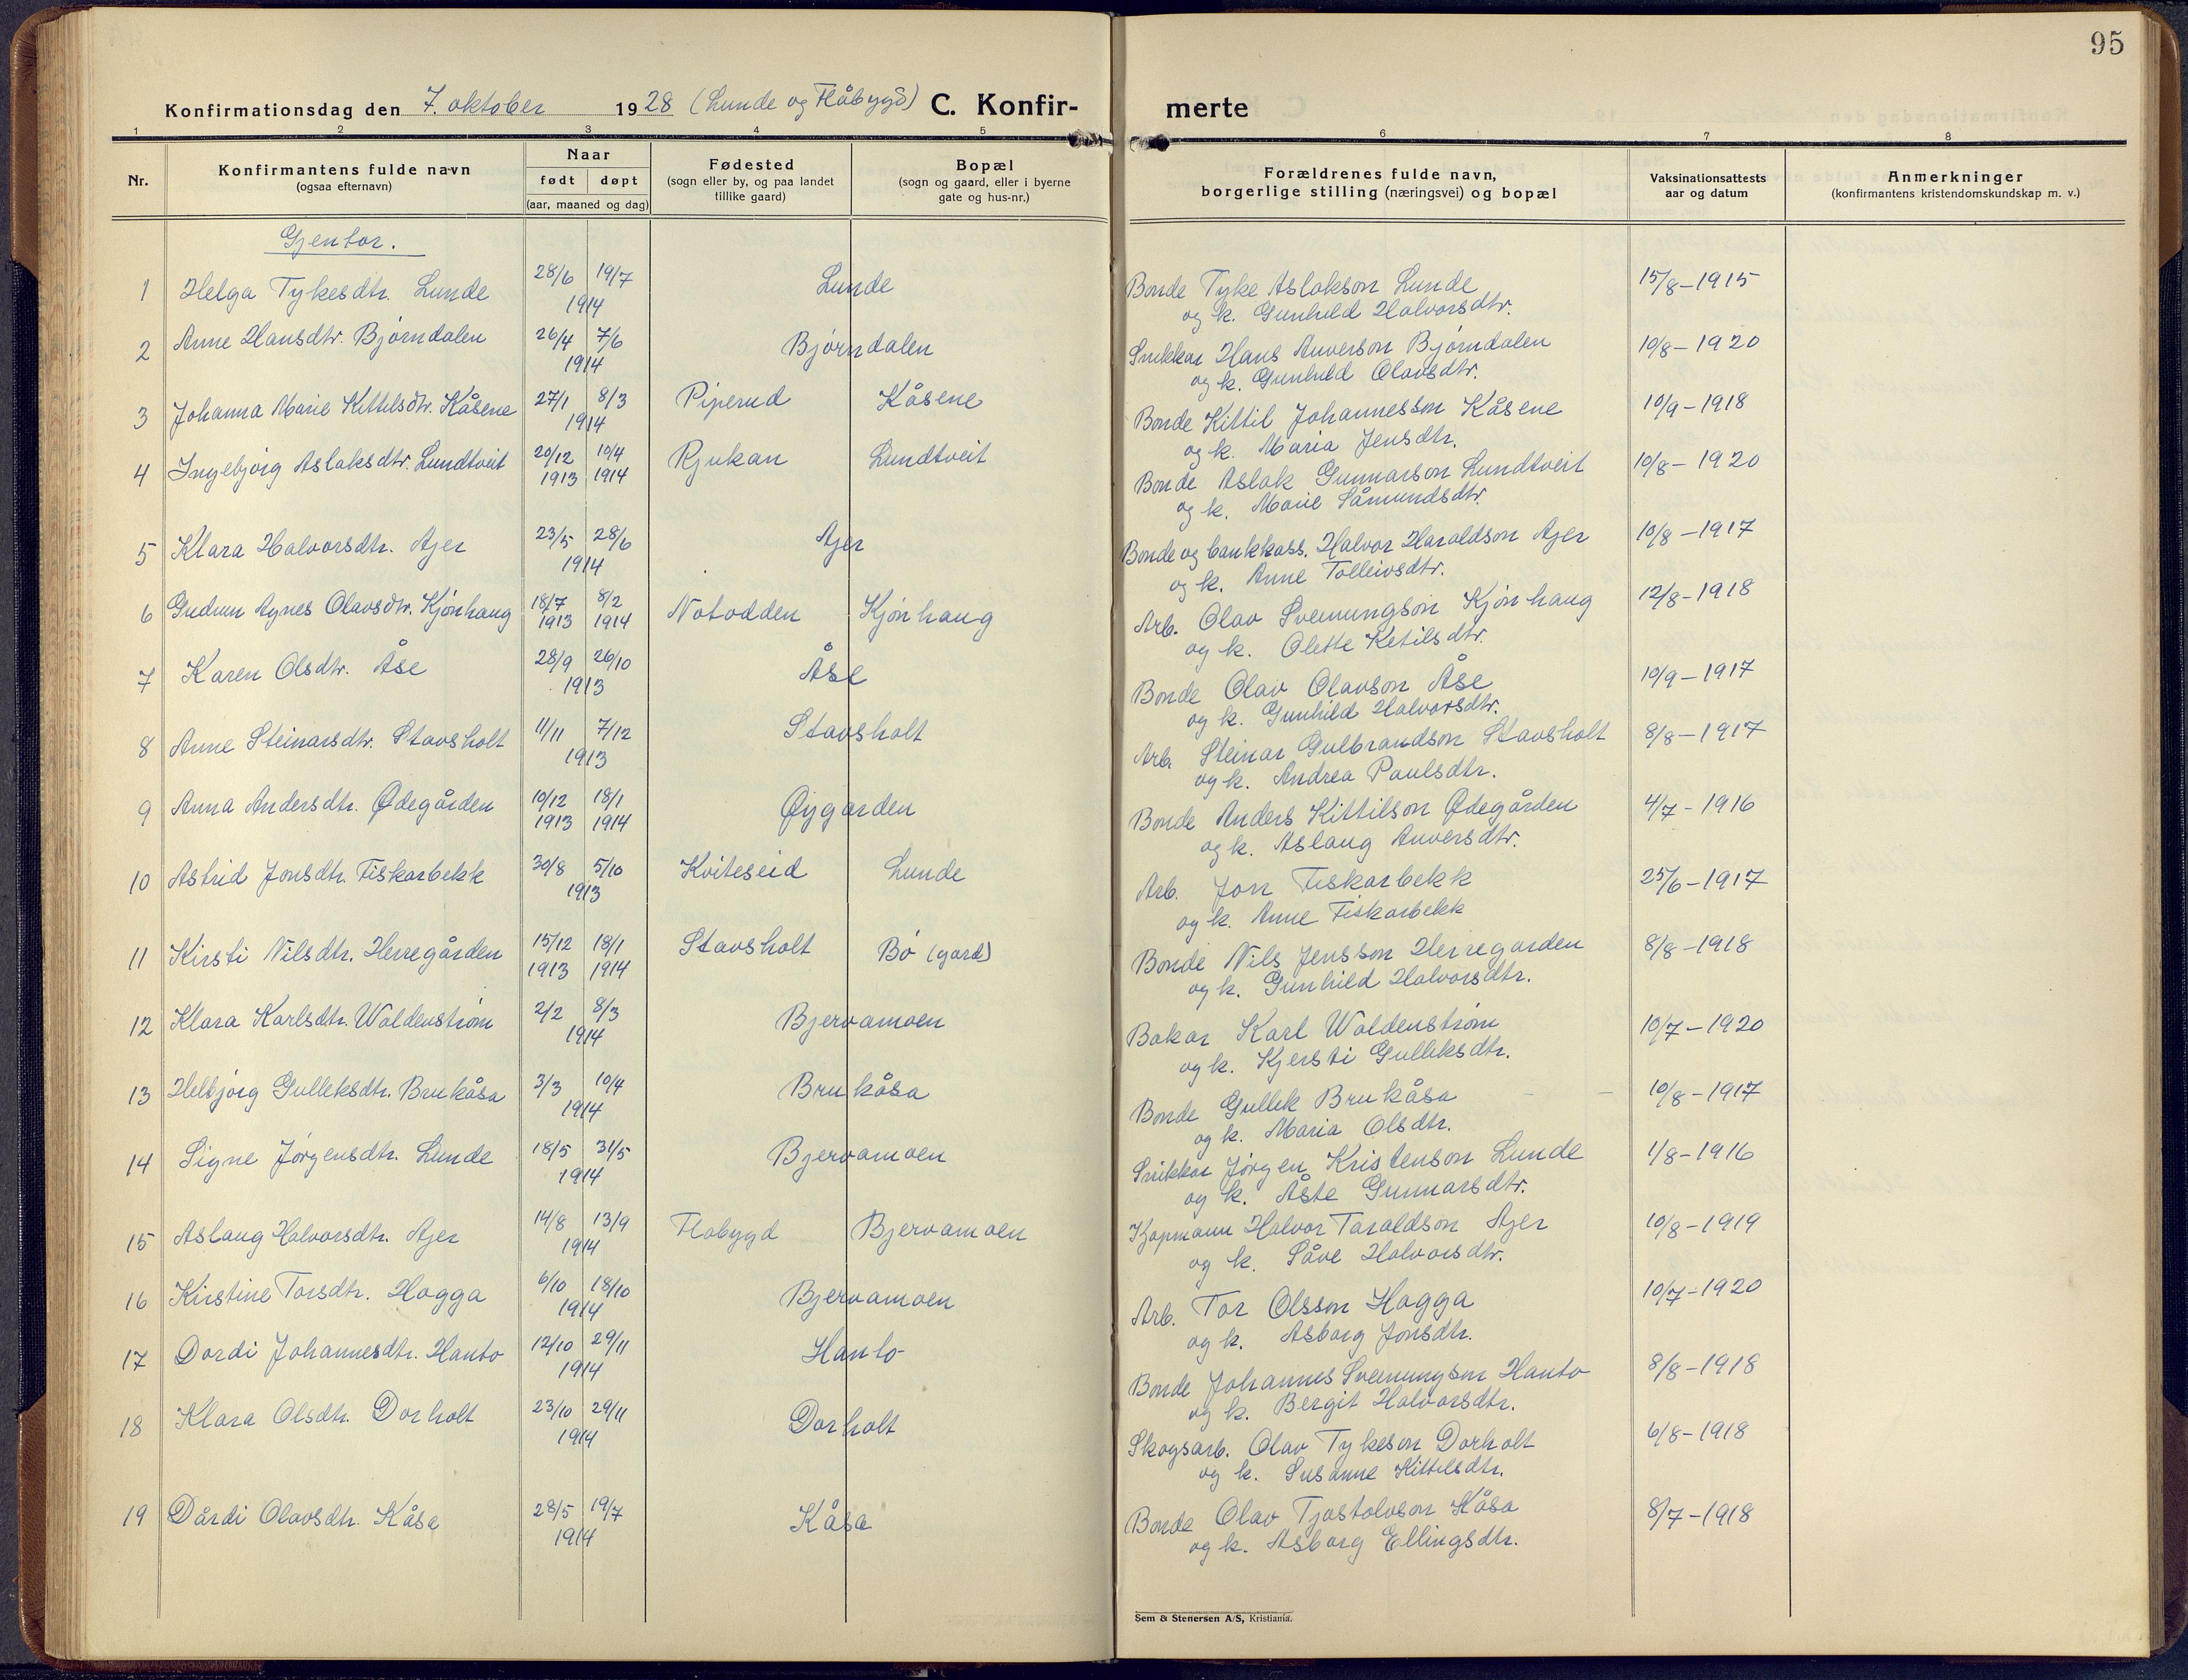 95
Konfirmationsdag den 7. oktober 1928 (Lunde og Flåbygd) C. Konfir-merte
1 2 3 4 5 6 7 8
Nr.
Konfirmantens fulde navn
(ogsaa efternavn)
Naar
født døpt
(aar, maaned og dag)
Fødested
(sogn eller by, og paa landet
tillike gaard)
Bopæl
(sogn og gaard, eller i byerne
gate og hus-nr.)
Forældrenes fulde navn,
borgerlige stilling (næringsvei) og bopæl
Vaksinationsattests
aar og datum
Anmerkninger
(konfirmantens kristendomskundskap m. v.)
Gjentor.
1 Helga Tykesdtr. Lunde 28/6 19/7 1914 Lunde Bonde Tyke Aslakson Lunde 15/8-1915
og k. Gunhild Halvorsdtr.
2 Anne Hansdtr. Bjørndalen 26/4 7/6 1914 Bjørndalen Snikkar Hans Anverson Bjørndalen 10/8-1920
og k. Gunhild Olavsdtr.
3 Johanna Marie Kittilsdtr. Kåsene 27/1 8/3 1914 Piperud Kåsene Bonde Kittil Johannesson Kåsene 10/9-1918
og k. Maria Jensdtr.
4 Ingebjørg Aslaksdtr. Lundtveit 20/12 1913 10/4 1914 Rjukan Lundtveit Bonde Aslak Gunnarson Lundtveit 10/8-1920
og k. Marie Såmundsdtr.
5 Klara Halvorsdtr. Ajer 23/5 28/6 1914 Ajer Bonde og bankkass. Halvor Haraldson Ajer 10/8-1917
og k. Anne Tolleivsdtr.
6 Gudrun Agnes Olavsdtr. Kjønhaug 18/7 1913 8/2 1914 Notodden Kjønhaug Arb. Olav Sveinungson Kjønhaug 12/8-1918
og k. Olette Ketilsdtr.
7 Karen Olsdtr. Åse 28/9 26/10 1913 Åse Bonde Olav Olavson Åse 10/9-1917
og k. Gunhild Halvorsdtr.
8 Anne Steinarsdtr. Stavsholt 11/11 7/12 1913 Stavsholt Arb. Steinar Gulbrandson Stavsholt 8/8-1917
og k. Andrea Paulsdtr.
9 Anna Andersdtr. Ødegården 10/12 1913 18/1 1914 Øygarden Bonde Anders Kittilson Ødegården 4/7-1916
og k. Aslaug Anversdtr.
10 Astrid Jonsdtr. Fiskarbekk 30/8 5/10 1913 Kviteseid Lunde Arb. Jon Fiskarbekk 25/6-1917
og k. Anne Fiskarbekk
11 Kirsti Nilsdtr. Herregården 15/12 1913 18/1 1914 Stavsholt Bø (gard) Bonde Nils Jensson Herregarden 8/8-1918
og k. Gunhild Halvorsdtr.
12 Klara Karlsdtr. Waldenstrøm 2/2 8/3 1914 Bjervamoen Bakar Karl Waldenstrøm 10/7-1920
og k. Kjersti Gulleksdtr.
13 Helbjørg Gulleksdtr. Brukåsa 3/3 10/4 1914 Brukåsa Bonde Gullek Brukåsa 10/8-1917
og k. Maria Olsdtr.
14 Signe Jørgensdtr. Lunde 18/5 31/5 1914 Bjervamoen Snikkar Jørgen Kristenson Lunde 1/8-1916
og k. Åste Gunnarsdtr.
15 Aslaug Halvorsdtr. Ajer 14/8 13/9 1914 Flabygd Bjervamoen Kjøpmann Halvor Taraldson Ajer 10/8-1919
og k. Såve Halvorsdtr.
16 Kirstine Torsdtr. Hogga 6/10 18/10 1914 Bjervamoen Arb. Tor Olsson Hogga 10/7-1920
og k. Asborg Jonsdtr.
17 Dordi Johannesdtr. Hanto 12/10 29/11 1914 Hanto Bonde Johannes Sveinungson Hanto 8/8-1918
og k. Bergit Halvorsdtr.
18 Klara Olsdtr. Dorholt 23/10 29/11 1914 Dorholt Skogsarb. Olav Tykeson Dorholt 6/8-1918
og k. Susanne Kittilsdtr.
19 Dårdi Olavsdtr. Kåsa 28/5 19/7 1914 Kåsa Bonde Olav Tjostolvson Kåsa 8/7-1918
og k. Asborg Ellingsdtr.
Sem & Stenersen A/S, Kristiania.